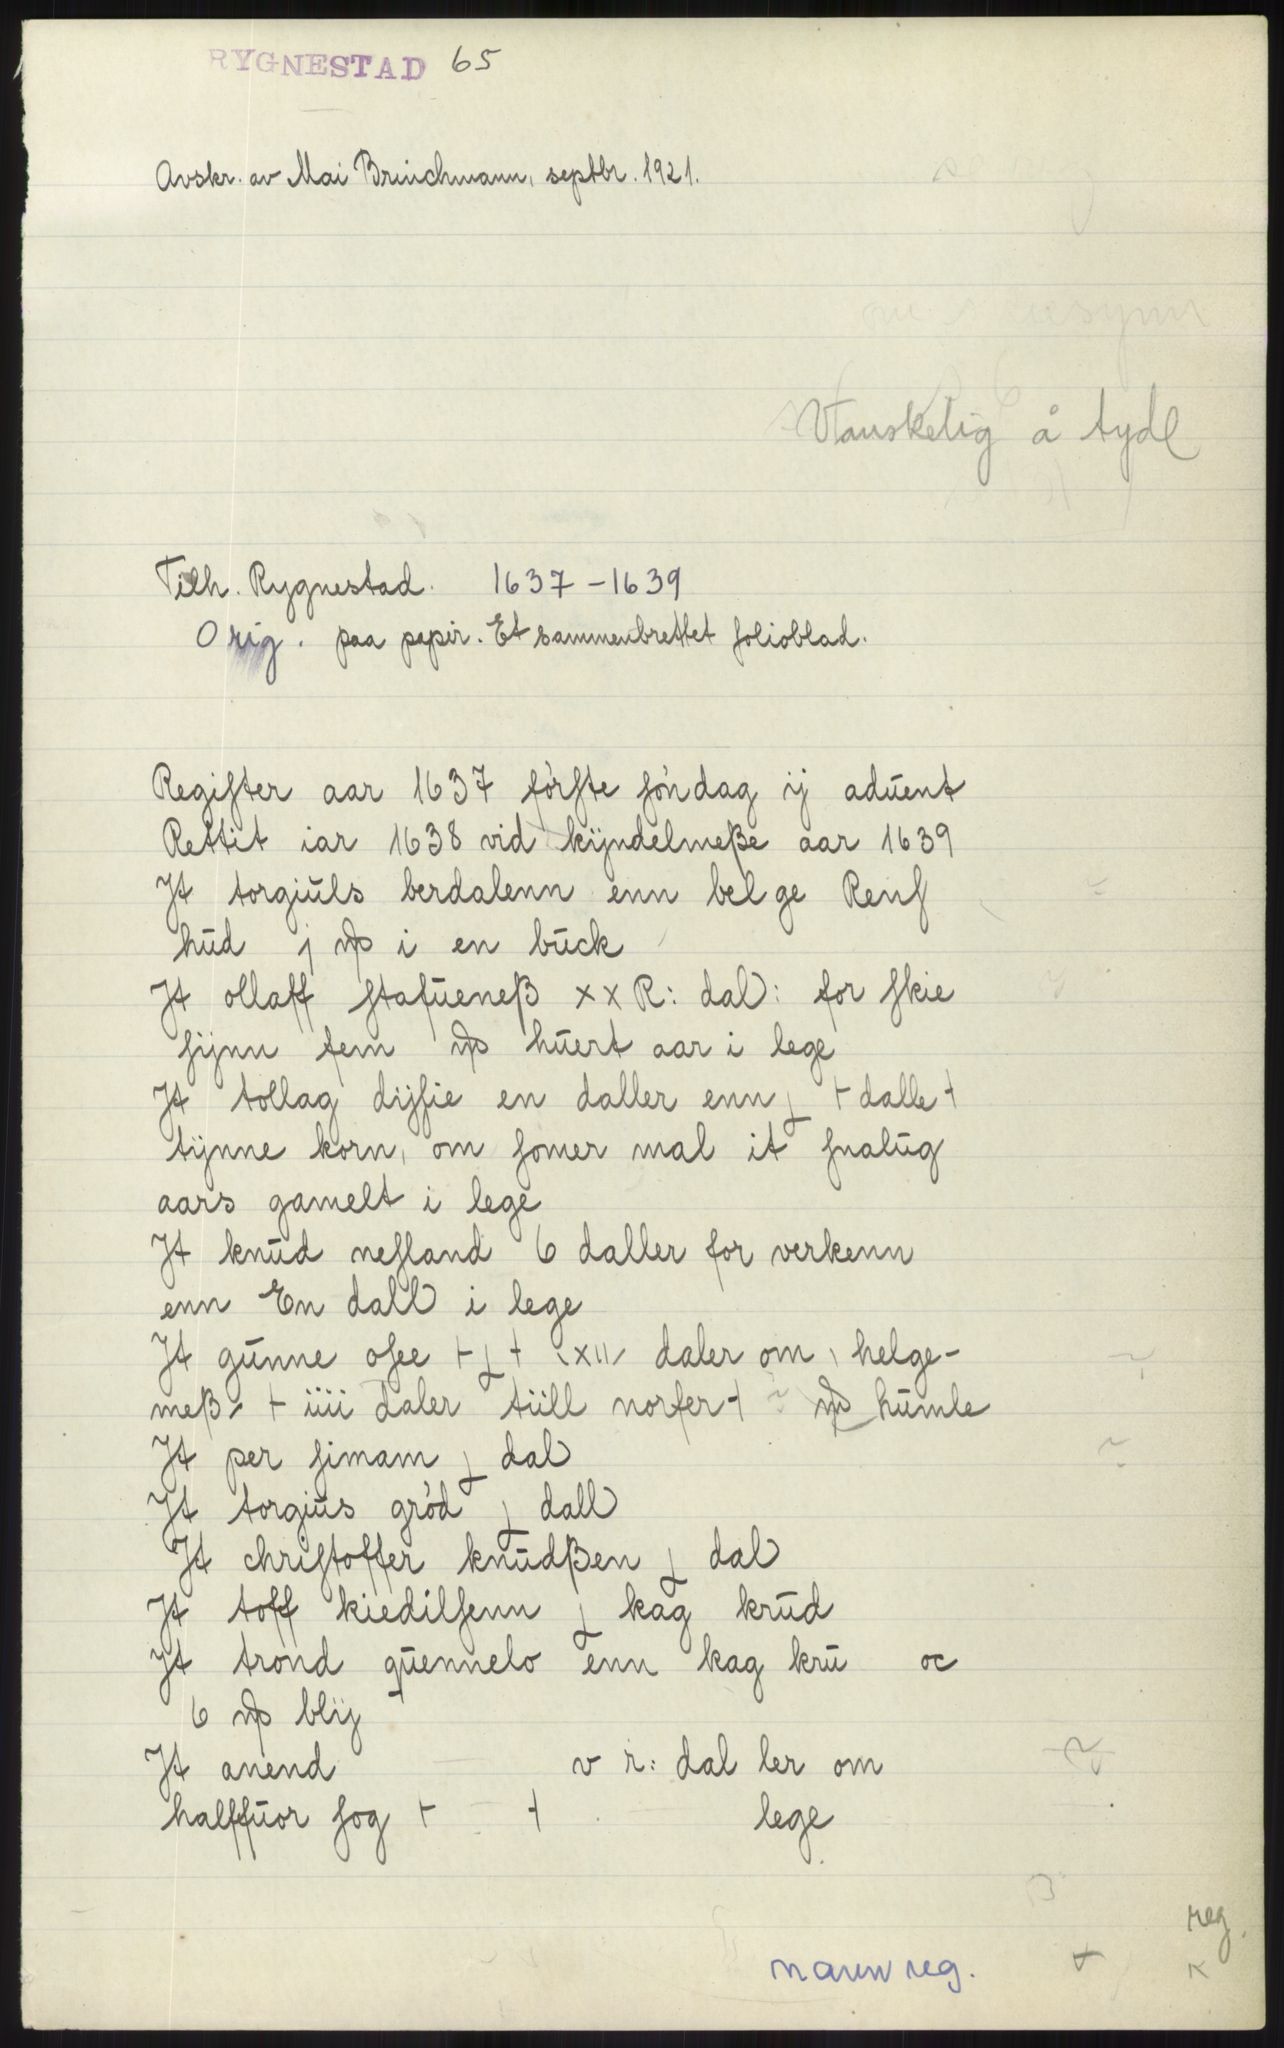 RYGNESTAD 65
Avskr. av Mai Brinchmann, septbr. 1921.
Vanskelig å tyde
Tilh. Rygnestad. 1637-1639
Orig. paa papir. Et sammenbrettet folioblad.
Regiſter aar 1637 förſte ſöndag ij aduent
Rettit iar 1638 vid kijndelmeße aar 1639
It torgiuls berdalenn enn belge Renſ
hud j ℔ i en buck
It ollaff ſtafueneß xx R: dal: for ſkie
ſijnn fem ℔ huert aar i lege
It tollag dijſie en daller enn ɉ ⊢dalle⊣
tijnne korn, om ſomer mal it ſnalug
aars gamelt i lege
It knud neſland 6 daller for verkenn
enn En dall i lege
It gunne oſee ⊢ɉ⊣ xii daler om helge-
meß ⊢iiii daler tiill norfer⊣ ℔ humle
It per ſimam ɉ dal
It torgius gröd ɉ dall
It chriſtoffer knudßen ɉ dal
It toff kiedilſenn ɉ kag krud
It trond quennelo enn kag kru oc
6 ℔ blij
It anend v r: dal ler om
halffuor ſog ⊢ ⊣ lege
reg.
navnreg. x